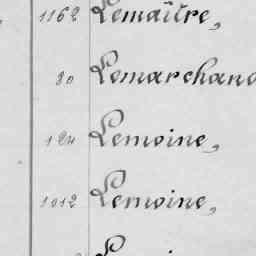 1162 Lemaître,
80 Lemarchand
124 Lemoine,
1012 Lemoine,